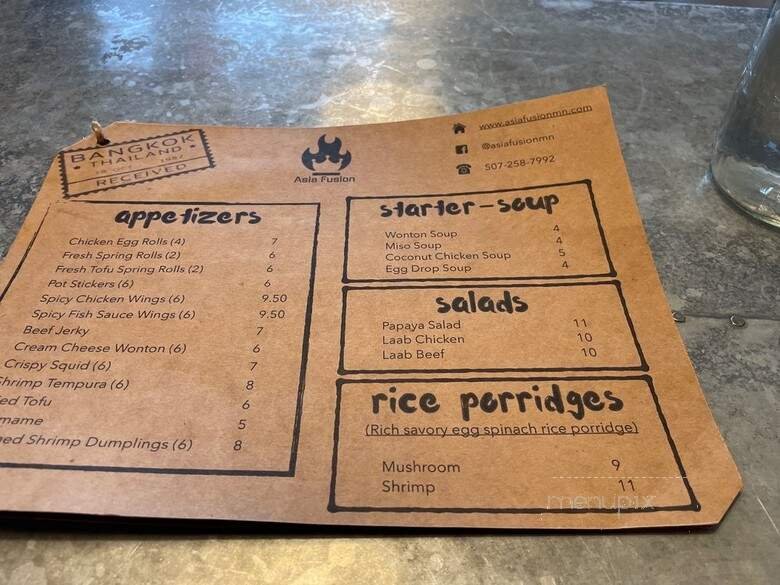 BANGKOK
THAILAND
RECEIVED
Asia Fusion
www.asiafusionmn.com
@asiafusionmn
507-258-7992
appetizers
Chicken Egg Rolls (4) 7
Fresh Spring Rolls (2) 6
Fresh Tofu Spring Rolls (2) 6
Pot Stickers (6) 6
Spicy Chicken Wings (6) 9.50
Spicy Fish Sauce Wings (6) 9.50
Beef Jerky 7
Cream Cheese Wonton (6) 6
Crispy Squid (6) 7
Shrimp Tempura (6) 8
ed Tofu 6
mame 5
ed Shrimp Dumplings (6) 8
starter-soup
Wonton Soup 4
Miso Soup 4
Coconut Chicken Soup 5
Egg Drop Soup 4
salads
Papaya Salad 11
Laab Chicken 10
Laab Beef 10
rice porridges
(Rich savory egg spinach rice porridge)
Mushroom 9
Shrimp 11
menupix